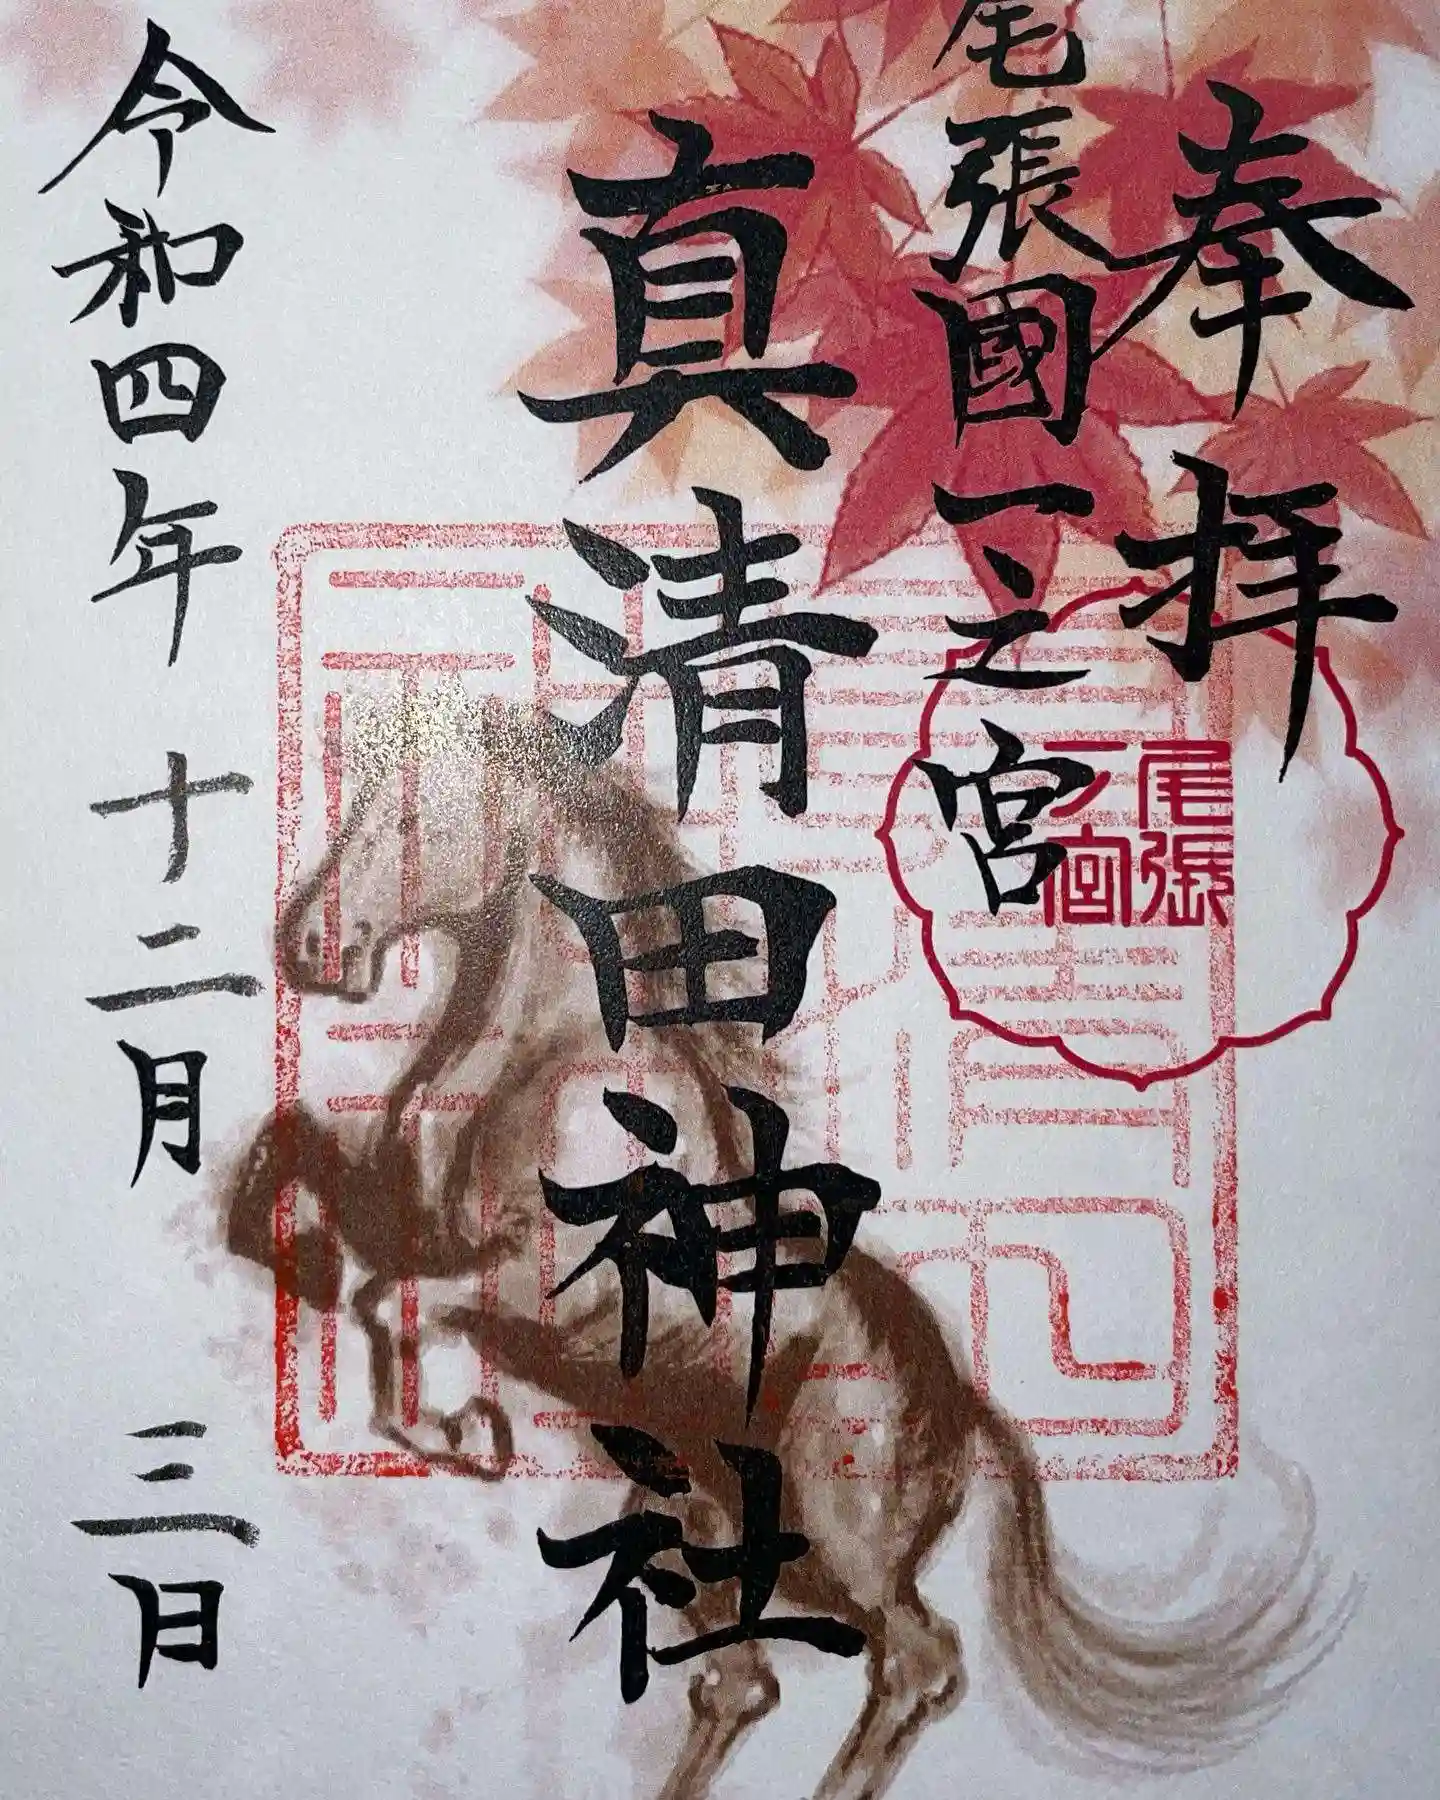 奉拝
尾張國一之宮
尾張
一ノ宮
真清田神社
令和四年十二月三日